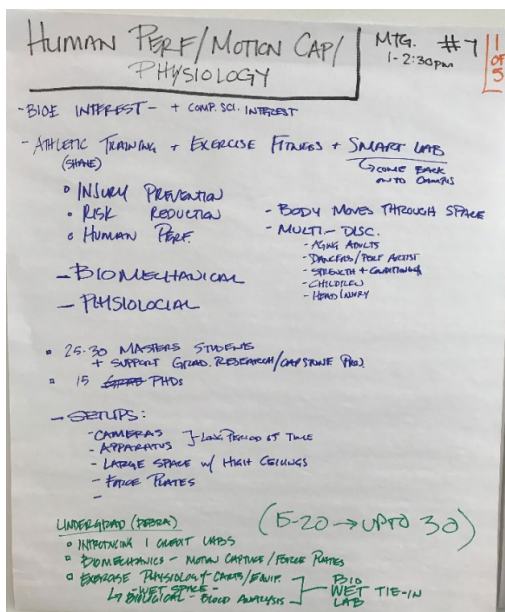 HUMAN PERF/MOTION CAP/
PHYSIOLOGY
MTG. #7
1-2:30pm
1 OF 5
- BIOE INTEREST - + COMP. SCI. INTEREST
- ATHLETIC TRAINING + EXERCISE FITNESS + SMART LAB
(SHANE)
↳ COME BACK ONTO CAMPUS
• INJURY PREVENTION
• RISK REDUCTION
• HUMAN PERF.
- BODY MOVES THROUGH SPACE
- MULTI-DISC.
- AGING ADULTS
- DANCERS/PERF ARTIST
- STRENGTH + CONDITIONING
- CHILDREN
- HEAD INJURY
- BIOMECHANICAL
- PHYSIOLOCIAL
▪ 25-30 MASTERS STUDENTS
+ SUPPORT GRAD. RESEARCH/CAPSTONE PROJ.
▪ 15 GRAD PHDS
- SETUPS:
- CAMERAS
- APPARATUS
} - LONG PERIOD OF TIME
- LARGE SPACE W/ HIGH CEILINGS
- FORCE PLATES
-
UNDERGRAD (DEBRA)
(15-20 → UP TO 30)
▫ INTRODUCING 1 CREDIT LABS
▫ BIOMECHANICS - MOTION CAPTURE/FORCE PLATES
▫ EXERCISE PHYSIOLOGY - CARTS/EQUIP.
- WET SPACE -
↳ BIOLOGICAL - BLOOD ANALYSIS
BIO
WET TIE-IN
LAB